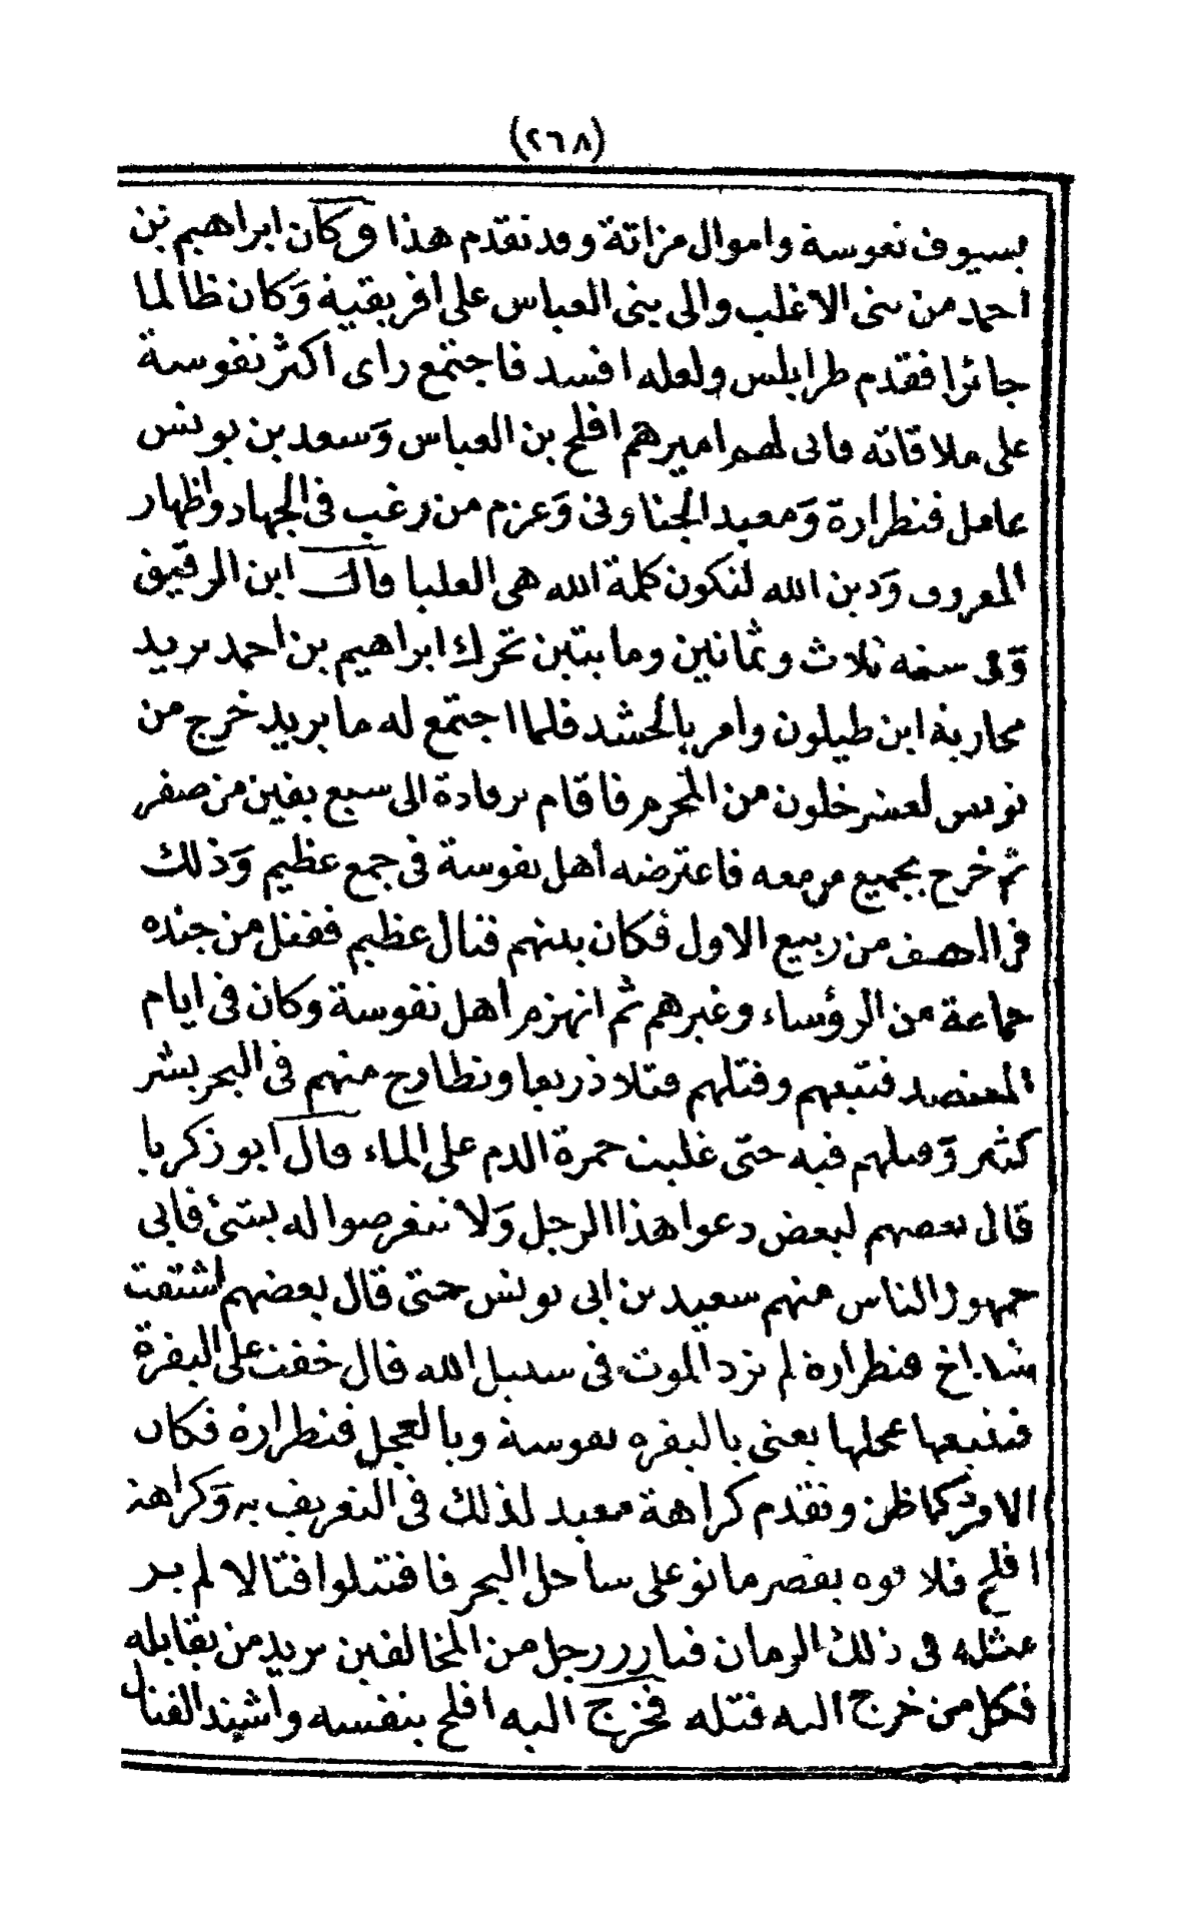 (٢٦٨)
بسيوف نفوسة واموال مزاتة وقد تقدم هذا وكان ابراهيم بن
احمد من بنى الاغلب والى بنى العباس على افريقية وكان ظالما
جائرا فقدم طرابلس ولعله افسد فاجتمع راى اكثر نفوسة
على ملاقاته فابى لهم اميرهم افلح بن العباس وسعد بن يونس
عامل قنطرارة ومعبد الجناونى وعزم من رغب فى الجهاد واظهار
المعروف ودين الله لتكون كلمة الله هى العليا قال ابن الرقيق
وفى سنة ثلاث وثمانين ومايتين تحرك ابراهيم بن احمد يريد
محاربة ابن طيلون وامر بالحشد فلما اجتمع له ما يريد خرج من
تونس لعشر خلون من المحرم فاقام برقادة الى سبع بقين من صفر
ثم خرج بجميع من معه فاعترضه أهل نفوسة فى جمع عظيم وذلك
فى النصف من ربيع الاول فكان بينهم قتال عظيم فقتل من جنده
جماعة من الرؤساء وغيرهم ثم انهزم أهل نفوسة وكان فى ايام
المعتضد فتبعهم وقتلهم قتلا ذريعا وتطارح منهم فى البحر بشر
كثير وقتلهم فيه حتى غلبت حمرة الدم على الماء قال ابو زكريا
قال بعضهم لبعض دعوا هذا الرجل ولا تتعرضوا له بشئ فابى
جمهور الناس منهم سعيد بن ابى يونس حتى قال بعضهم اشتقت
شداخ قنطرارة لم ترد الموت فى سبيل الله قال خفت على البقرة
فيتبعها عجلها يعنى بالبقرة نفوسة وبالعجل قنطرارة فكان
الامر كما ظن وتقدم كراهة معبد لذلك فى التعريف به وكراهة
افلح فلاقوه بقصر مانو على ساحل البحر فاقتتلوا قتالا لم ير
مثله فى ذلك الزمان فبارز رجل من المخالفين يريد من يقابله
فكل من خرج اليه قتله فخرج اليه افلح بنفسه واشتد القتال